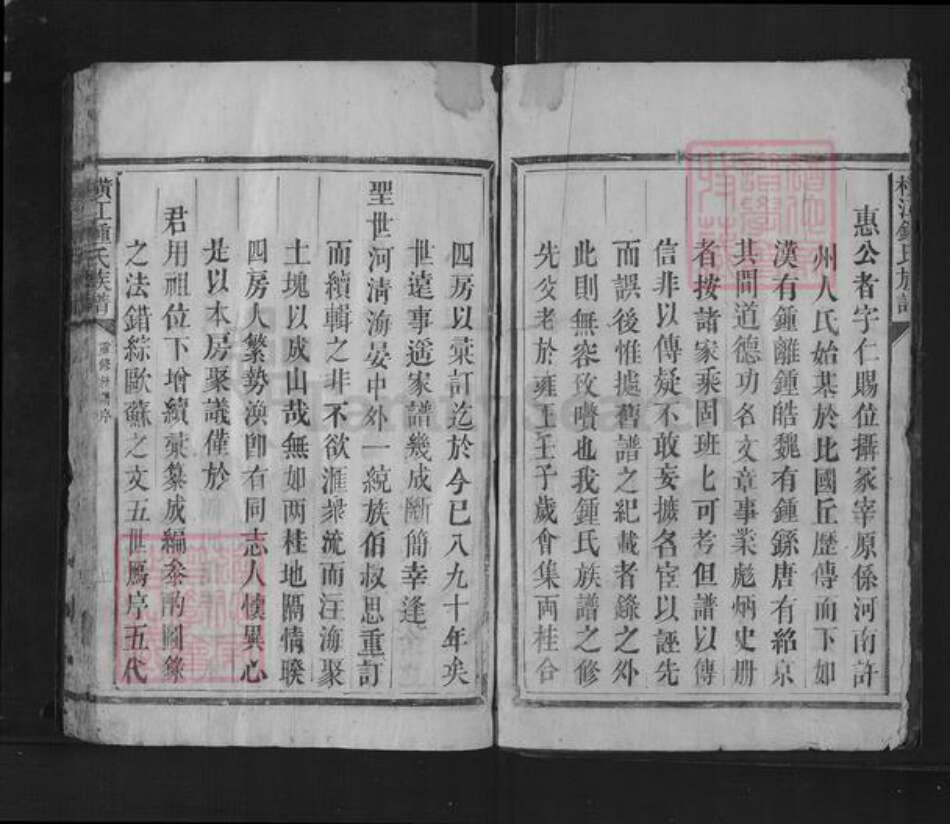 惠公者字仁賜位攝冢宰原係河南許
州人氏始基於比國丘歷傳而下如
漢有鍾離鍾皓魏有鍾繇唐有紹京
其間道德功名文章事業彪炳史册
者按諸家乘固班匕可考但譜以傳
信非以傳疑不敢妄摭名宦以誣先
而誤後惟據舊譜之紀載者錄之外
此則無容攷嘖也我鍾氏族譜之修
先父老於雍正壬子歲會集両桂合
四房以彚訂迄於今已八九十年矣
世遠事遥家譜幾成斷簡幸逢
聖世河清海晏中外一統族伯叔思重訂
而續輯之非不欲滙衆流而汪海聚
土塊以成山哉無如两桂地隔情睽
四房人繁勢渙卽有同志人懷異心
是以本房聚議僅於
君用祖位下增續彚纂成編叅酌圖錄
之法錯綜歐蘇之文五世鴈序五代
橫江鍾氏族譜
重修族譜序